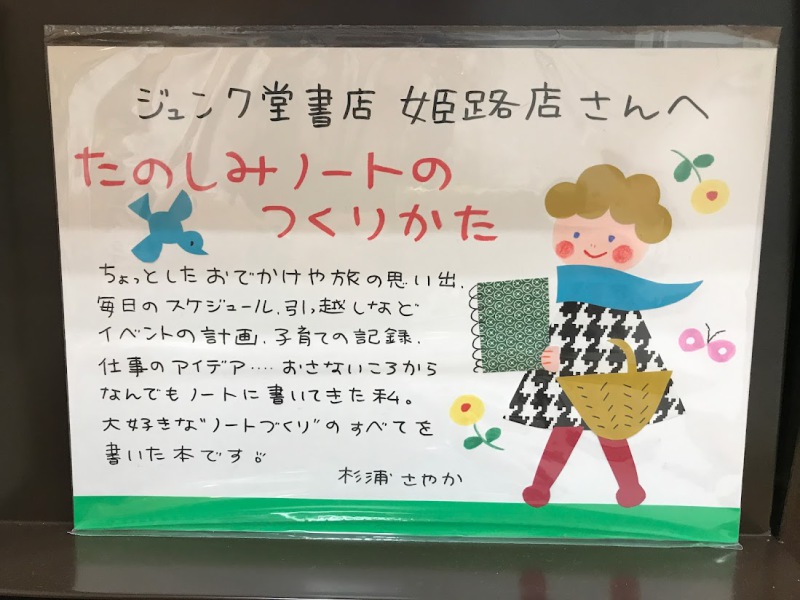 ジュンク堂書店 姫路店さんへ
たのしみノートの
つくりかた
ちょっとしたおでかけや旅の思い出、
毎日のスケジュール、引っ越しなど
イベントの計画、子育ての記録、
仕事のアイデア‥‥おさないころから
なんでもノートに書いてきた私。
大好きな"ノートづくり"のすべてを
書いた本です。
杉浦さやか